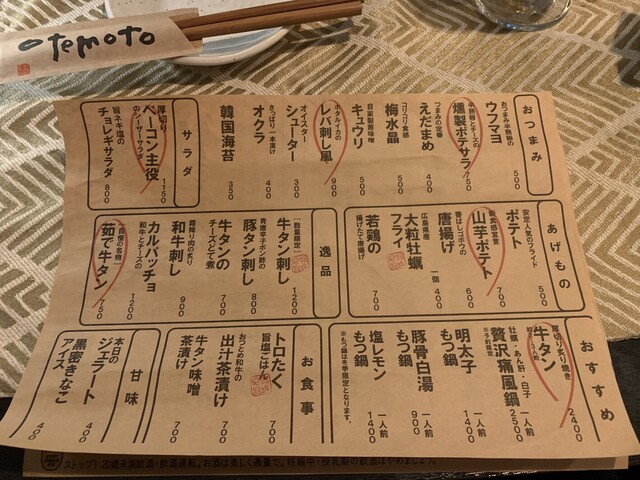 otemoto
おつまみ
おつまみ半熟卵の
ウフマヨ 500
半熟卵とチーズの
燻製ポテサラ 750
つまみの定番
えだまめ 400
コリコリ食感
梅水晶 500
自家製悪味噌
キュウリ 500
ホタルイカの
レバ刺し風 900
オイスター
シューター 300
さっぱり一本漬け
オクラ 400
韓国海苔 350
サラダ
厚切り
ベーコン主役
のシーザーサラダ 1150
旨ネギ塩の
チョレギサラダ 800
あげもの
安定人気のフライド
ポテト 500
山芋ポテト 700
香ばしゴボウの
唐揚げ 600
広島県産
大粒牡蠣
フライ 一個 400
若鶏の
揚げたて唐揚げ 700
逸品
【数量限定】
牛タン刺し 1200
青唐辛子ポン酢の
豚タン刺し 800
牛タンの
チーズとて煮 700
霜降り肉の炙り
和牛刺し 900
カルパッチョ
和牛とチーズの 1200
一日寄の名物
茹で牛タン 750
おすすめ
厚切り炙り焼き
牛タン 2400
牡蠣・あん肝・白子
贅沢痛風鍋 一人前 2500
※予約限定
明太子
もつ鍋 一人前 1400
豚骨白湯
もつ鍋 一人前 900
塩レモン
もつ鍋 一人前 1400
※もつ鍋は冬季限定となります。
お食事
トロたく
旨塩ごはん 700
おっとめ和牛の
出汁茶漬け 700
牛タン味噌
茶漬け 700
甘味
本日の
ジェラート 400
黒密きなこ
アイス 400
ストップ!20歳未満飲酒・飲酒運転。お酒は楽しく適量で。妊娠中・授乳期の飲酒はやめましょう。